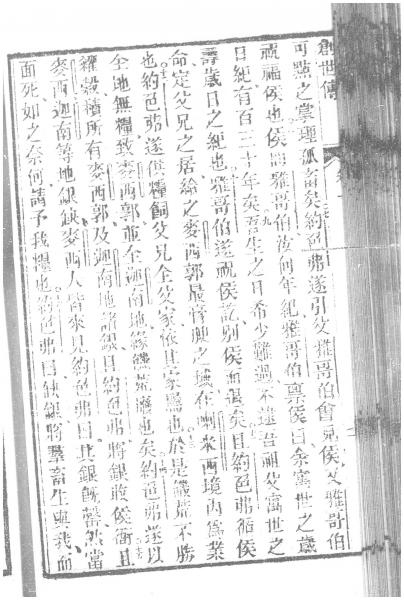 創世傳
可點之裳理孤畜矣約色弗遂引父雅哥伯會見侯父雅哥伯
祝福侯也侯謂雅哥伯汝何年紀雅哥伯稟侯曰余寓世之歲
日紀有百三十年矣吾生之日希少難過不逮吾祖父寓世之
壽歲日之紀也雅哥伯遂祝侯訖別侯面退矣且約色弗循侯
命定父兄之居給之麥西郭最豐腴之域在喇來西境內為業
也約色弗遂供糧飼父兄全父家依其家口也於是饑荒不勝
全地無糧致麥西郭並全迦南地緣饑荒也矣約色弗遂以
糴穀積所有麥西郭及迦南地諸銀且約色弗將銀收侯衙且
麥西迦南等地銀缺麥西人皆來見約色弗曰此銀既罄然當
面死如之奈何請予我糧也約色弗曰缺銀將羣畜生與我而